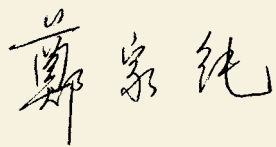 鄭家純